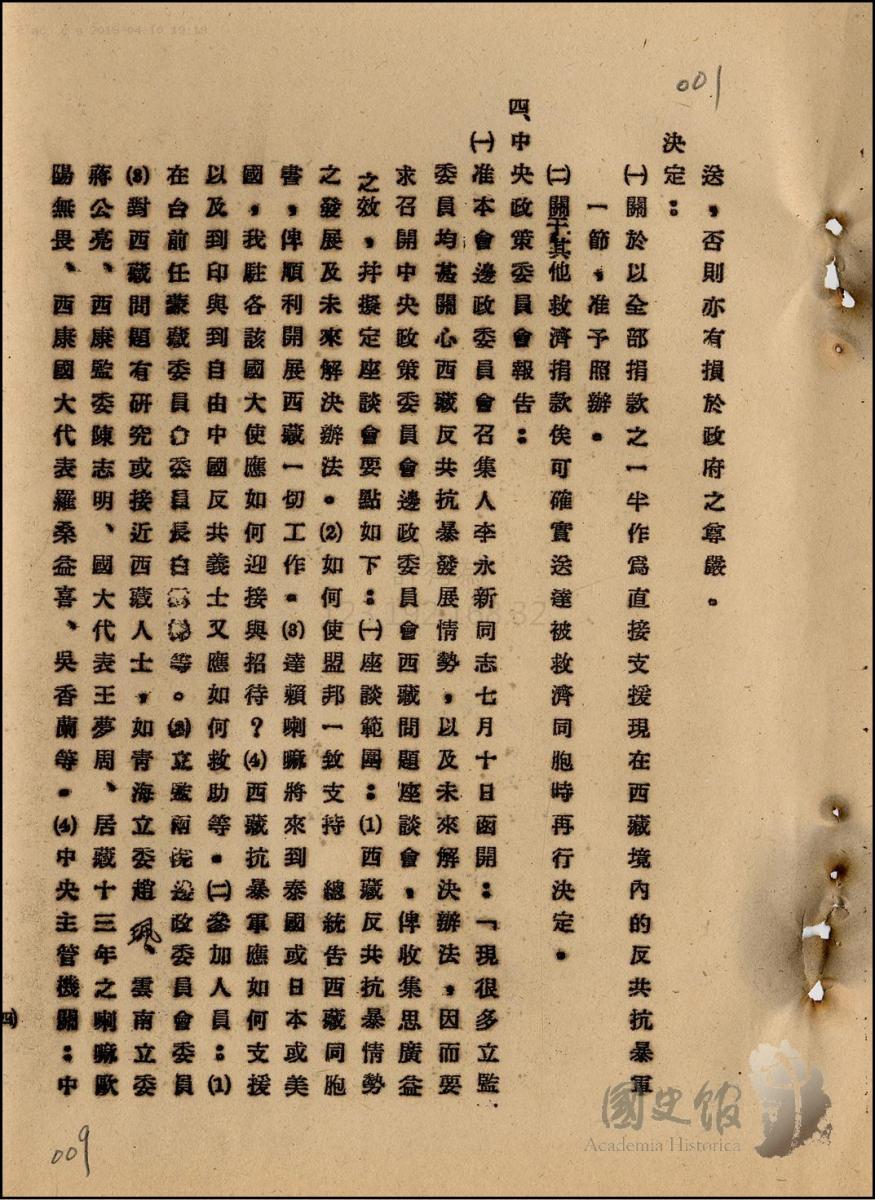 001
送，否則亦有損於政府之尊嚴。
決定：
㈠關於以全部捐款之一半作爲直接支援現在西藏境內的反共抗暴軍
一節，准予照辦。
㈡關于其他救濟捐款俟可確實送達被救濟同胞時再行決定。
四、中央政策委員會報告：
㈠准本會邊政委員會召集人李永新同志七月十日函開：「現很多立監
委員均甚關心西藏反共抗暴發展情勢，以及未來解決辦法，因而要
求召開中央政策委員會邊政委員會西藏問題座談會，俾收集思廣益
之效，幷擬定座談會要點如下：㈠座談範圍：⑴西藏反共抗暴情勢
之發展及未來解決辦法。⑵如何使盟邦一致支持　總統告西藏同胞
書，俾順利開展西藏一切工作。⑶達賴喇嘛將來到泰國或日本或美
國，我駐各該國大使應如何迎接與招待？⑷西藏抗暴軍應如何支援
以及到印與到自由中國反共義士又應如何救助等。㈡參加人員：⑴
在台前任蒙藏委員會委員長白等。⑵立監兩院邊政委員會委員
⑶對西藏問題有研究或接近西藏人士，如青海立委趙珮、雲南立委
蔣公亮、西康監委陳志明、國大代表王夢周、居藏十三年之喇嘛歐
陽無畏、西康國大代表羅桑益喜、吳香蘭等。⑷中央主管機關：中
㈣
009
國史館
Academia Historica